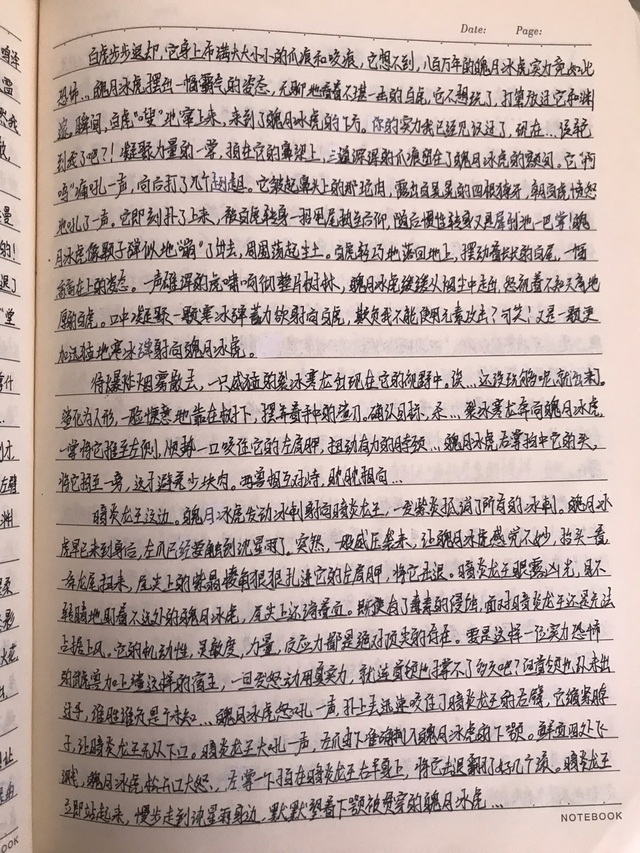 Date: Page:
白虎步步退却，它身上布满大大小小的爪痕和咬痕，它想不到，八百万年的魄月冰虎实力竟如此
恐怖… 魄月冰虎摆出一幅霸气的姿态，无聊地看着不堪一击的白虎，它不想玩了，打算放过它和渊
瞬间，白虎"嗖"地窜上来，来到了魄月冰虎的下方。你的实力我已经见识过了，现在… 该轮
到我了吧？！凝聚力量的一掌，拍在它的鼻梁上，三道深深的爪痕留在了魄月冰虎的颜间。它"啊
呜"痛吼一声，向后打了几个趔趄。它皱起鼻头上的那坨肉，露出白晃晃的四根獠牙，朝白虎愤怒
地吼了一声。它即刻扑了上来，被白虎转身一招甩尾抽至后仰，随后惯性转身又是犀利地一巴掌！魄
月冰虎像颗子弹似地"蹦"了出去，周围荡起尘土。白虎轻巧地落回地上，摆动着长长的白尾，一幅
高高在上的姿态。一声雄浑的虎啸响彻整片树林，魄月冰虎缓缓从烟尘中走出，怒视着不知天高地
厚的白虎。口中凝聚一颗寒冰弹蓄力欲射向白虎，欺负我不能使用元素攻击？可笑！又是一颗更
加迅猛地寒冰弹射向魄月冰虎。
待爆炸烟雾散去，一只威猛的裂冰寒龙出现在它的视野中。诶… 还没玩够呢，就出来了。
渊化为人形，一脸惬意地靠在树下，摆弄着手中的渣刀。确认目标，杀… 裂冰寒龙奔向魄月冰虎，
一掌将它推至左侧，顺势一口咬住它的左肩胛，扭动有力的脖颈… 魄月冰虎右掌拍中它的头，
将它拍至一旁，这才避免少块肉。两兽相互对峙，眈眈相向…
暗炎龙王这边。魄月冰虎发动冰刺射向暗炎龙王，一发紫炎抵消了所有的冰刺。魄月冰
虎早已来到身后，左爪已经要触到沈星雨了。突然，一股威压袭来，让魄月冰虎感觉不妙，抬头一看
一条龙尾扫来，尾尖上的紫晶棱角狠狠扎进它的左肩胛，将它击退。暗炎龙王眼露凶光，目不
转睛地盯着不远处的魄月冰虎，尾尖上还滴着血。即便有了毒素的侵蚀，面对暗炎龙王还是无法
占据上风。它的机动性，灵敏度，力量，反应力都是绝对顶尖的存在。要是这样一位实力恐怖
的武兽加上渣这样的宿主，一旦发怒动用真实力，就连首领也撑不了多久吧？但首领也从未出
过手，谁胜谁负是个未知… 魄月冰虎怒吼一声，扑上去迅速咬住了暗炎龙王的右臂，它缩紧脖
子，让暗炎龙王无从下口。暗炎龙王大吼一声，左爪由下准确刺入魄月冰虎的下颚。鲜血四处飞
溅，魄月冰虎松开口大怒，左掌一下拍在暗炎龙王右半身上，将它击退翻了好几个滚。暗炎龙王
立即站起来，慢步走到沈星雨身边，默默望着下颚被贯穿的魄月冰虎…
NOTEBOOK